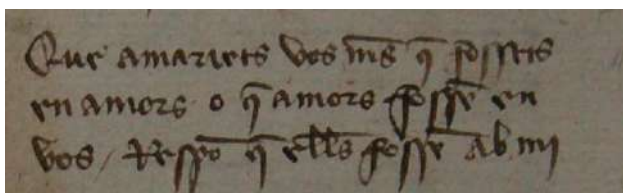 Que amariets vos mẽs q̃ fossets
en amors o q̃ amors fossẽ en
vos / Respõ q̃ ells̃ fossẽ ab mi